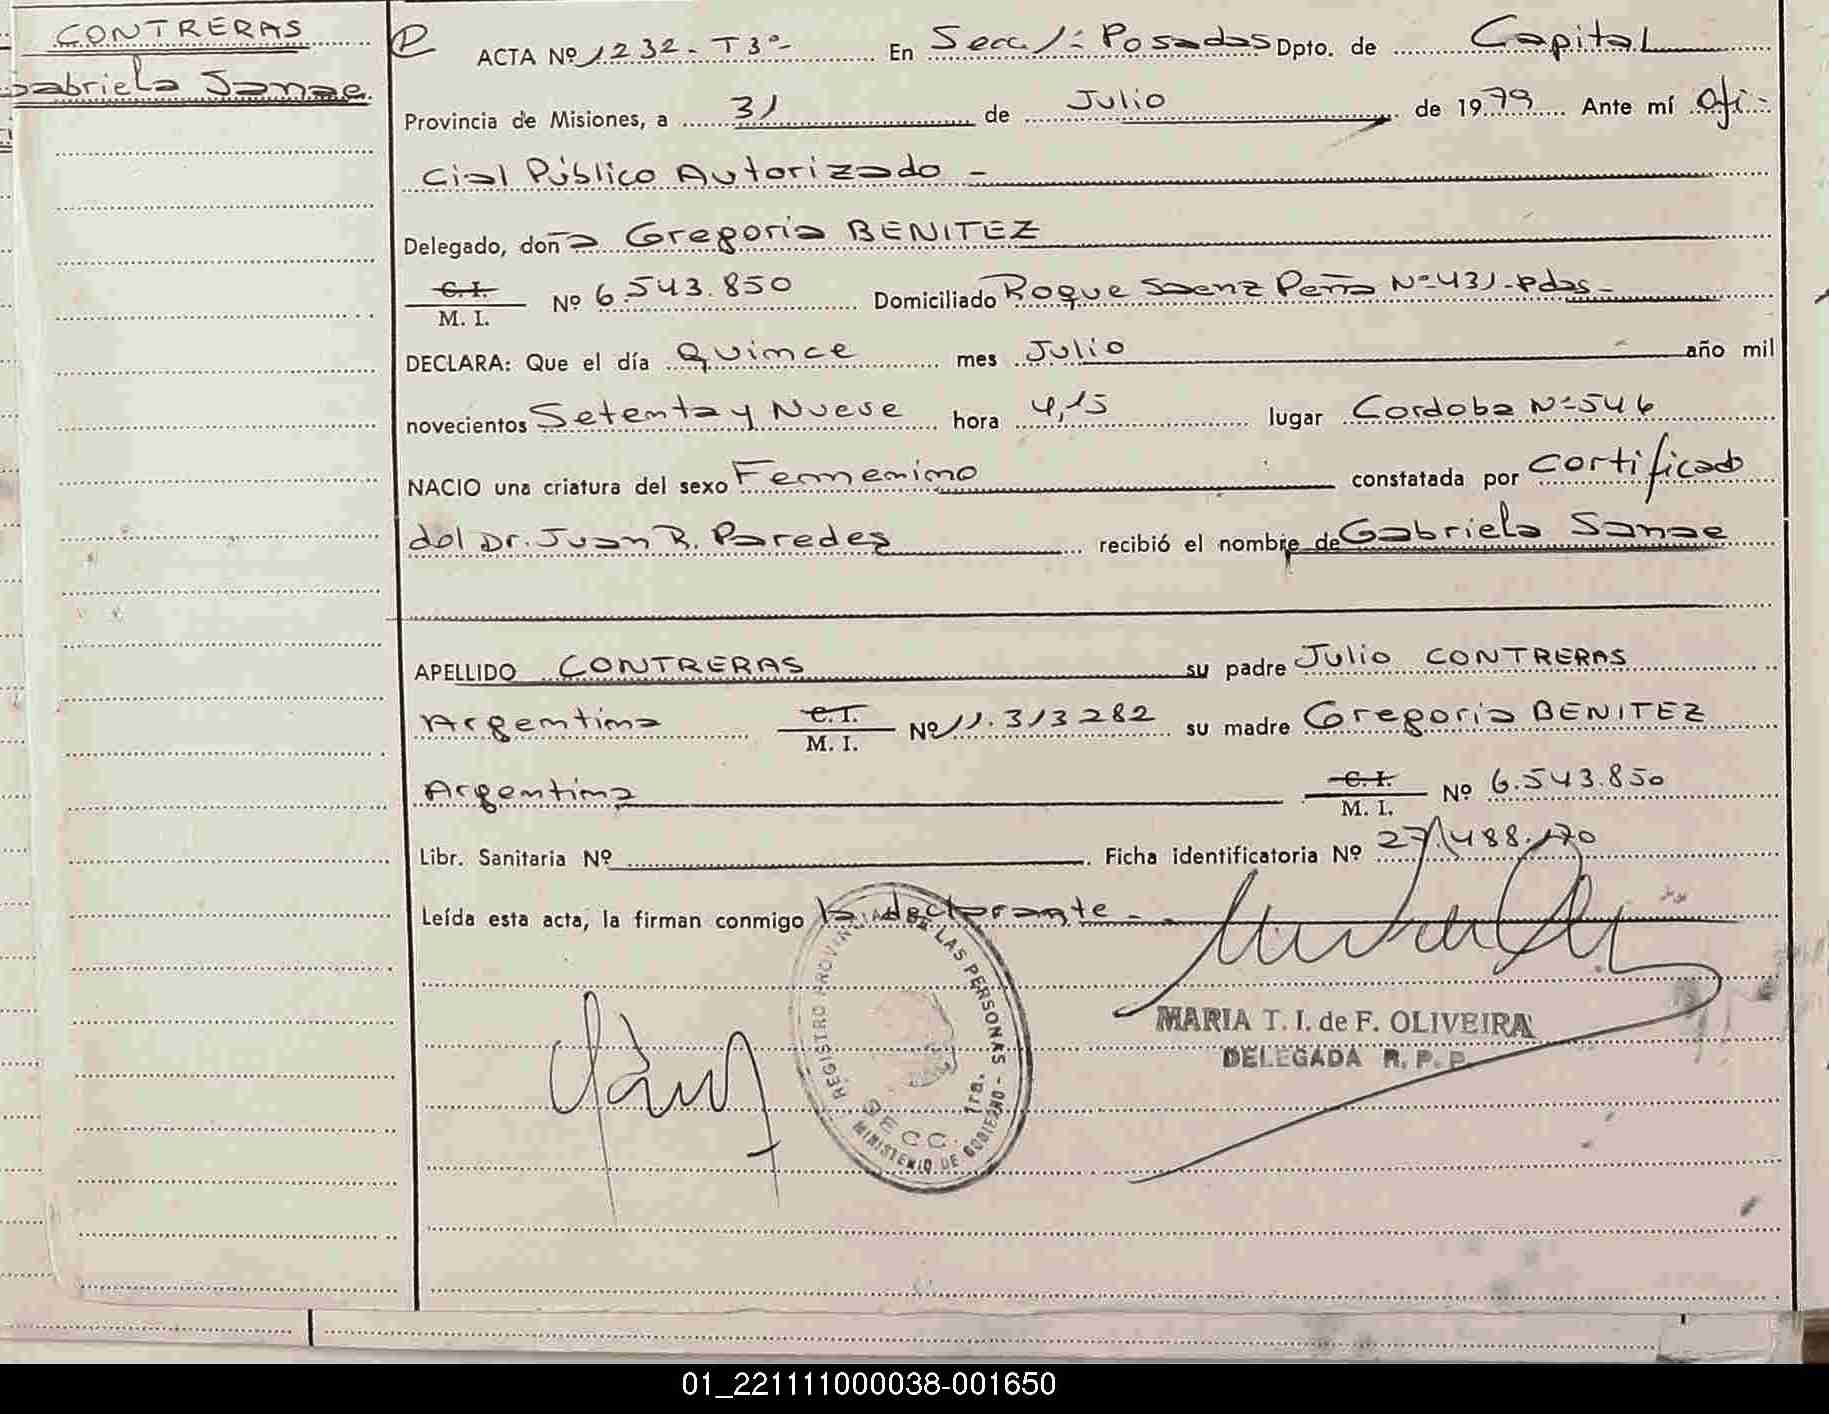 CONTRERAS
Gabriela Sanae
ACTA Nº 1232- T3º- En Secc. 1ª Posadas Dpto. de Capital
Provincia de Misiones, a 31 de Julio de 1979 Ante mí Ofi-
cial Público Autorizado -
Delegado, doña Gregoria BENITEZ
C. I.
M. I. Nº 6.543.850 Domiciliado Roque Saenz Peña Nº 431-Pdas-
DECLARA: Que el día Quince mes Julio año mil
novecientos Setenta y Nueve hora 4,15 lugar Cordoba Nº 546
NACIO una criatura del sexo Femenino constatada por Certificado
del Dr. Juan R. Paredes recibió el nombre de Gabriela Sanae
APELLIDO CONTRERAS su padre Julio CONTRERAS
Argentino C. I.
M. I. Nº 11.313282 su madre Gregoria BENITEZ
Argentina C. I.
M. I. Nº 6.543.850
Libr. Sanitaria Nº Ficha identificatoria Nº 27.488.170
Leída esta acta, la firman conmigo la declarante -
REGISTRO PROVINCIAL DE LAS PERSONAS - MINISTERIO DE GOBIERNO
SECC. 1ra.
MARIA T. I. de F. OLIVEIRA
DELEGADA R. P. P.
01_221111000038-001650